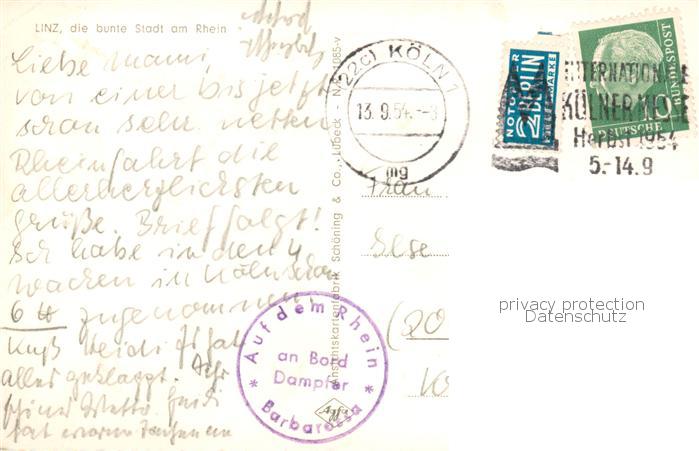 LINZ, die bunte Stadt am Rhein
Liebe Mami,
von einer bis jetzt
schon sehr netten
Rheinfahrt die
allerherzlichsten
Grüße. Brief folgt!
Ich habe in den 4
Wochen in Köln schon
6 ℔ zugenommen!
Kuß Heidi
alles geklappt.
Ansichtskartenfabrik Schöning & Co., Lübeck
Agfa
Auf dem Rhein
an Bord
Dampfer
* Barbarossa *
(22c) KÖLN 1
13.9.54.-8
mg
NOTOPFER
2 BERLIN
STEUERMARKE
10
DEUTSCHE
BUNDESPOST
INTERNATIONALE
KÖLNER MESSE
Herbst 1954
5.-14.9
Frau
Else
privacy protection
Datenschutz